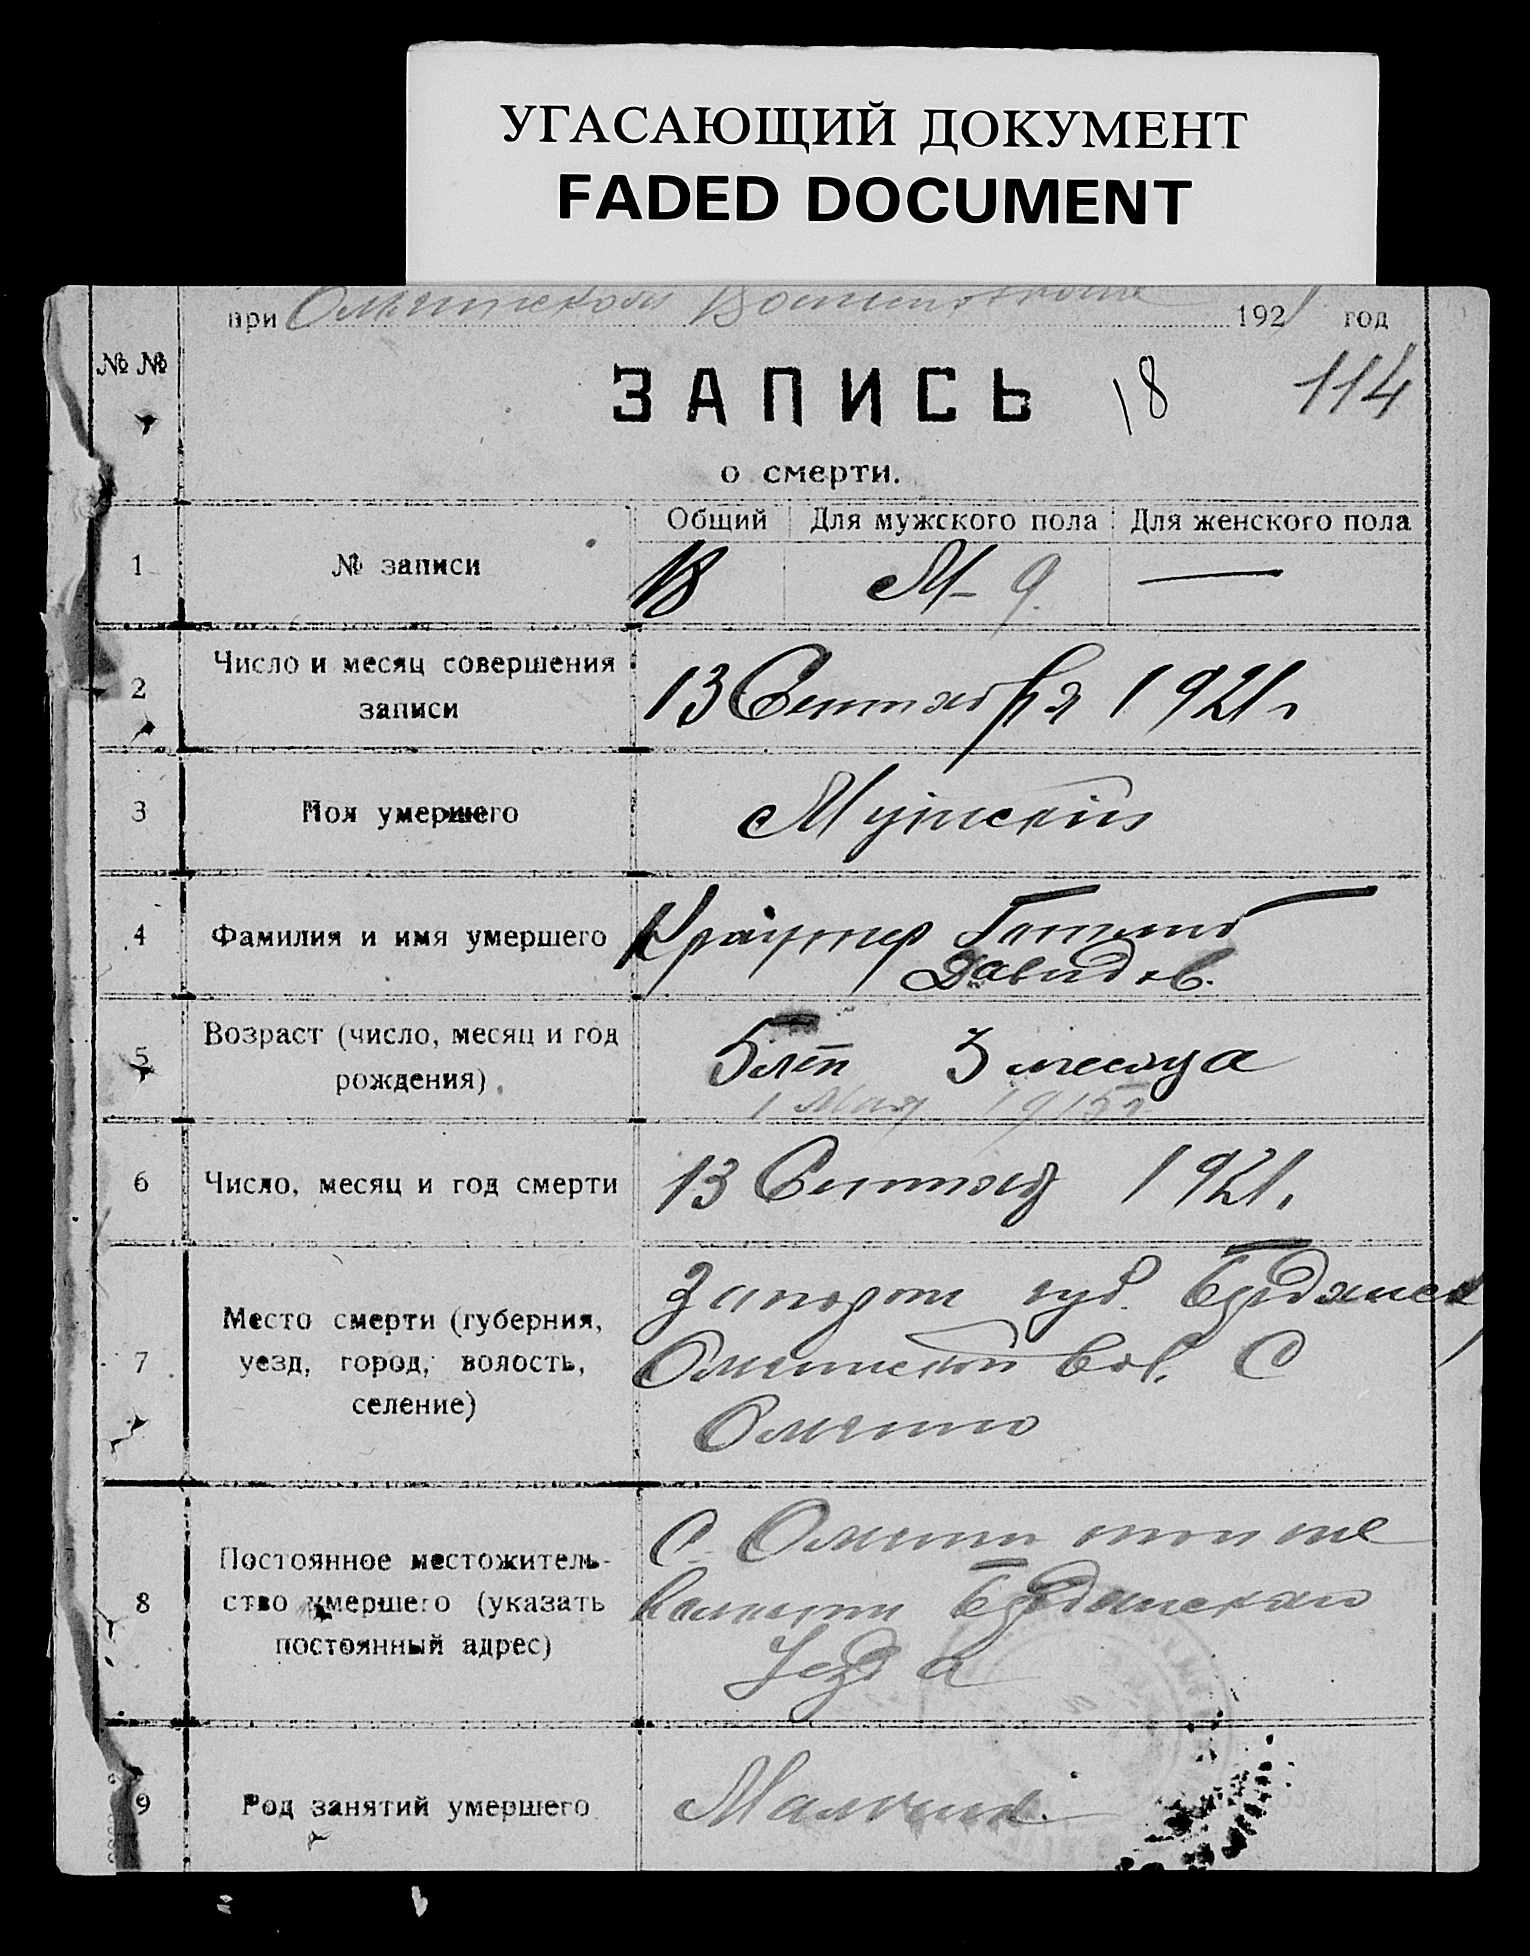 УГАСАЮЩИЙ ДОКУМЕНТ
FADED DOCUMENT
при 192 год
№ №
ЗАПИСЬ 18 114
о смерти.
Общий Для мужского пола Для женского пола
1 № записи 18 М- 9. —
2 Число и месяц совершения
записи
13 Сентября 1921 г
3 Пол умершего Мужский
4 Фамилия и имя умершего Краутер Готлиб
Давидов.
5 Возраст (число, месяц и год
рождения)
5 лет 3 месяца
1 Мая 1915 г
6 Число, месяц и год смерти 13 Сентяб 1921.
7 Место смерти (губерния,
уезд, город, волость,
селение)
Запорож губ. Бердянск
вол. С
8 Постоянное местожитель-
ство умершего (указать
постоянный адрес)
С. тои же
Бердянскаго
Уезда
9 Род занятий умершего Мальчик.